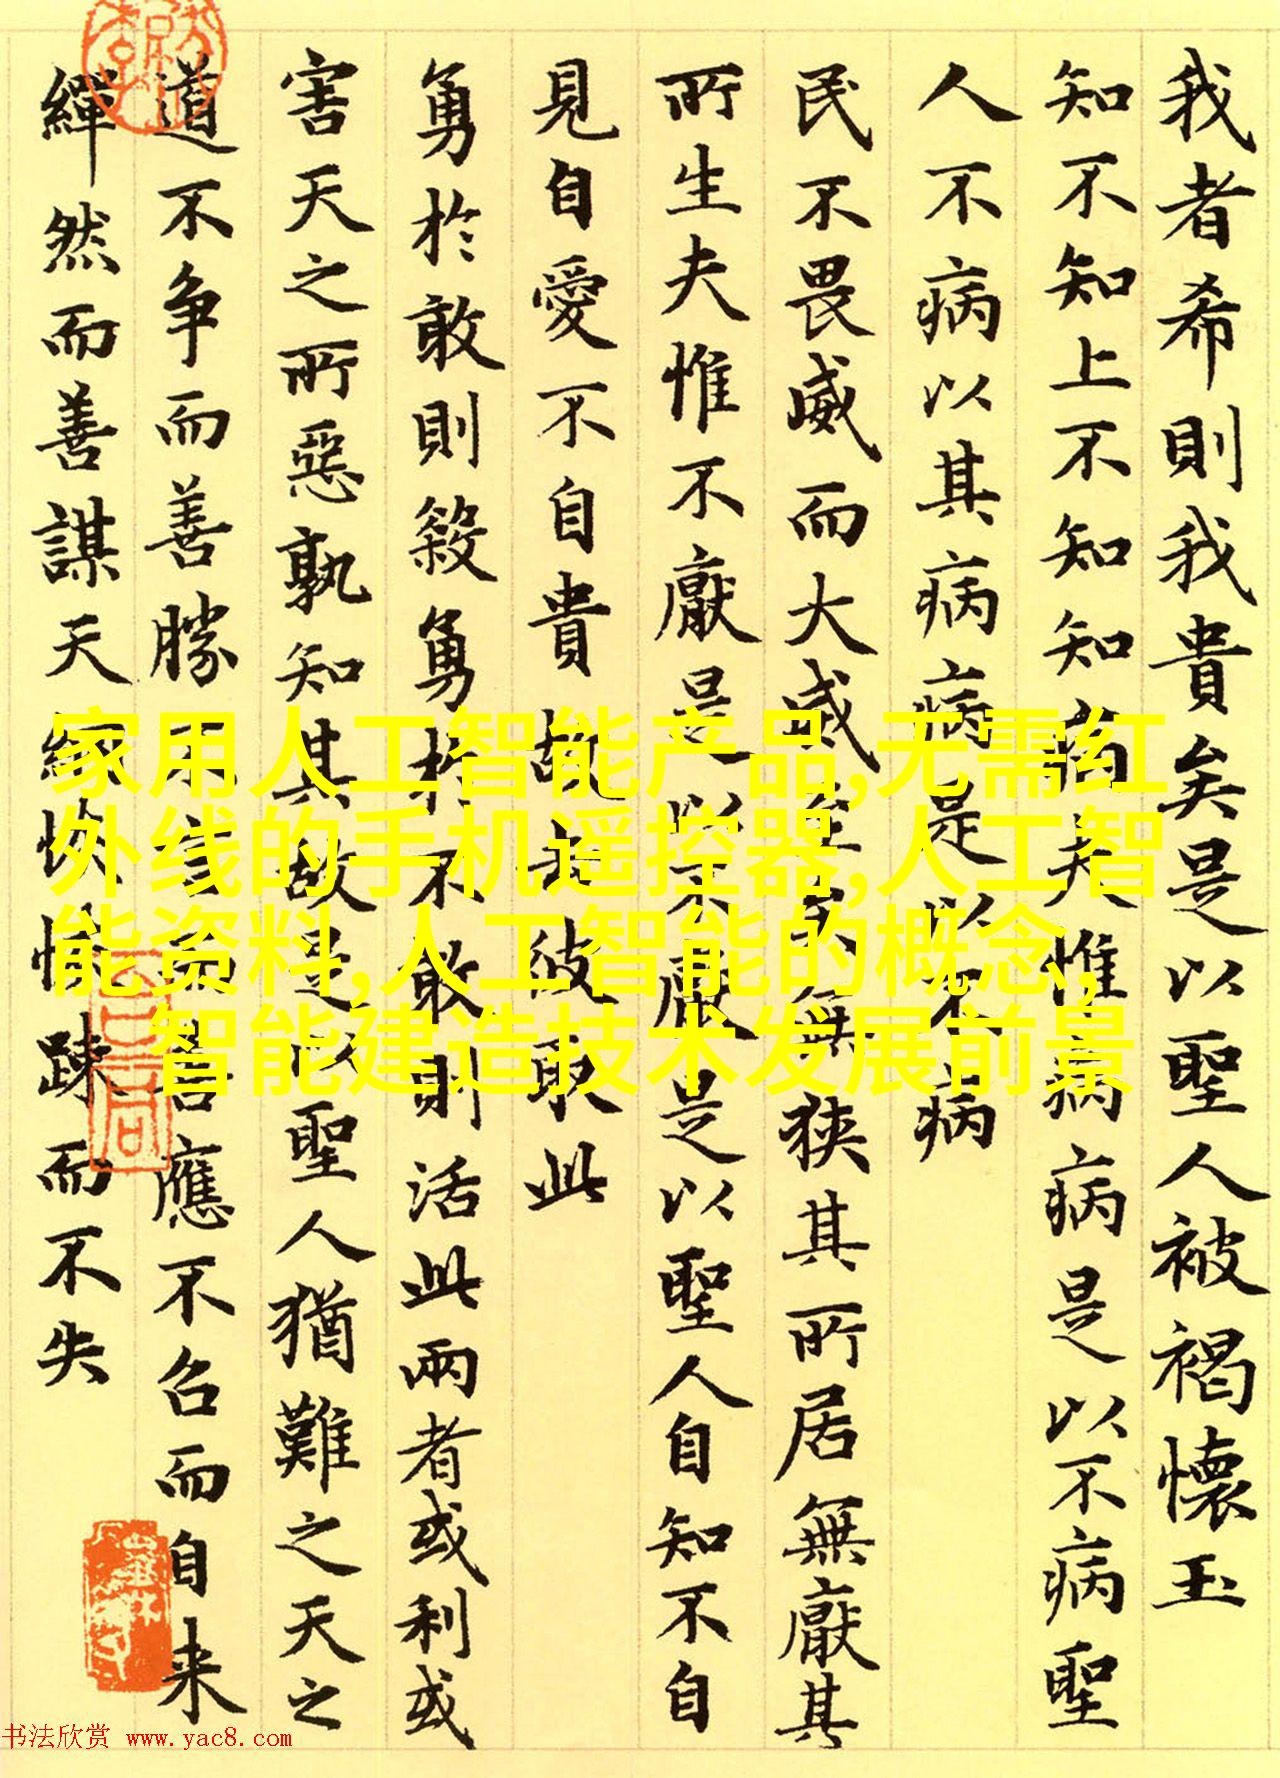 我者希則我貴矣是以聖人被褐懷玉
知不知上不知知病夫惟病病是以不病聖
人不病以其病病是以不病
民不畏威而大威至矣無狹其所居無厭其
所生夫惟不厭是以不厭是以聖人自知不自
見自愛不自貴故去彼取此
勇於敢則殺勇於不敢則活此兩者或利或
害天之所惡孰知其故是以聖人猶難之天之
道不争而善勝不言而善應不召而自来
繟然而善謀天網恢恢踈而不失
家用人工智能产品,无需红
外线的手机遥控器,人工智
能资料,人工智能的概念,
智能建造技术发展前景
书法欣赏 www.yac8.com